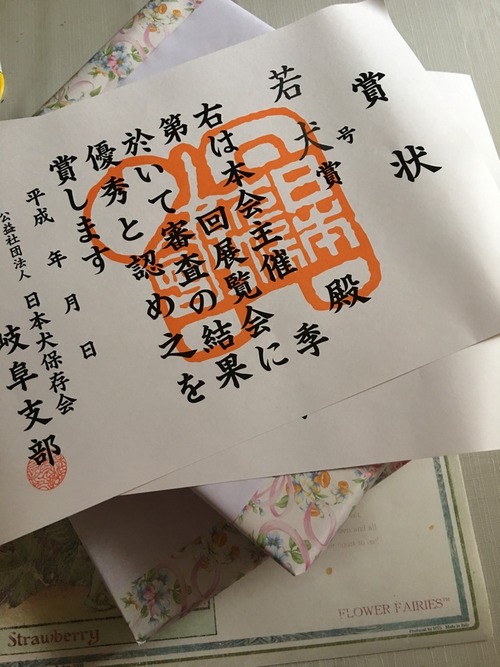 賞状
号
殿
若犬賞
右は本会主催
第 回展覧会 季
於いて審査の結果
優秀と認め之を
賞します
平成 年 月 日
公益社団法人 日本犬保存会
岐阜支部
Strawberry
FLOWER FAIRIES™